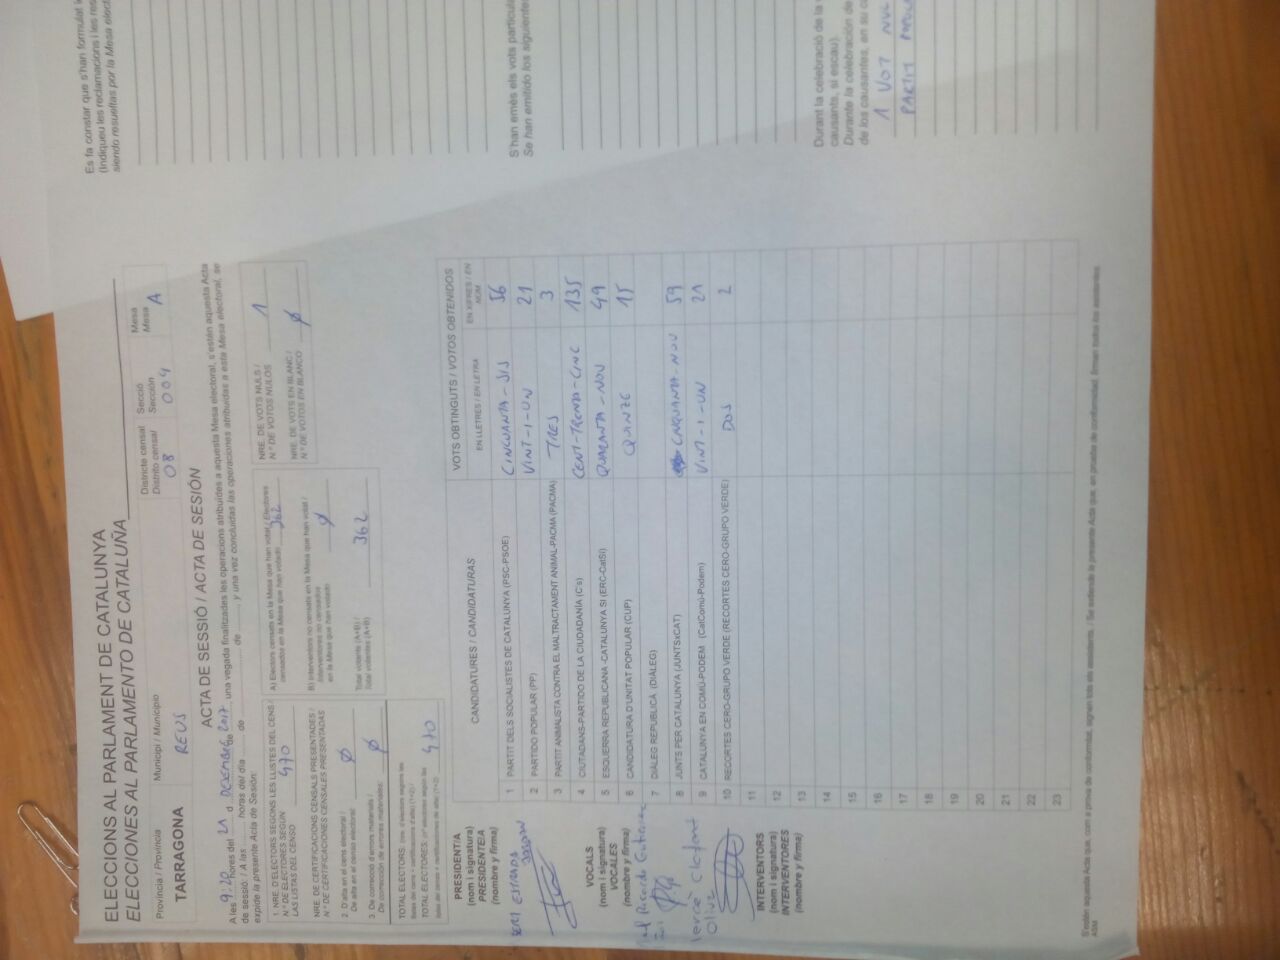 ELECCIONS AL PARLAMENT DE CATALUNYA
ELECCIONES AL PARLAMENTO DE CATALUÑA
Província / Provincia
TARRAGONA
Municipi / Municipio
REUS
Districte censal
Distrito censal
08
Secció
Sección
004
Mesa
Mesa
A
ACTA DE SESSIÓ / ACTA DE SESIÓN
A les 9:20 hores del 21 d DESEMBRE 2017 una vegada finalitzades les operacions atribuïdes a aquesta Mesa electoral, s'estén aquesta Acta
de sessió / A las horas del día de de , y una vez concluidas las operaciones atribuidas a esta Mesa electoral, se
expide la presente Acta de Sesión:
1. NRE. D'ELECTORS SEGONS LES LLISTES DEL CENS /
N.º DE ELECTORES SEGÚN
LAS LISTAS DEL CENSO
470
NRE. DE CERTIFICACIONS CENSALS PRESENTADES /
N.º DE CERTIFICACIONES CENSALES PRESENTADAS
2. D'alta en el cens electoral /
De alta en el censo electoral:
Ø
3. De correcció d'errors materials /
De corrección de errores materiales:
Ø
TOTAL ELECTORS:
TOTAL ELECTORES:
470
A) Electors censats en la Mesa que han votat / Electores
censados en la Mesa que han votado
362
B) Interventors no censats en la Mesa que han votat /
Interventores no censados
en la Mesa que han votado
Ø
Total votants (A+B) /
Total votantes (A+B)
362
NRE. DE VOTS NULS /
N.º DE VOTOS NULOS
1
NRE. DE VOTS EN BLANC /
N.º DE VOTOS EN BLANCO
Ø
CANDIDATURES / CANDIDATURAS
VOTS OBTINGUTS / VOTOS OBTENIDOS
EN LLETRES / EN LETRA
EN XIFRES / EN NÚM
1 PARTIT DELS SOCIALISTES DE CATALUNYA (PSC-PSOE) CINCUANTA-SIS 56
2 PARTIDO POPULAR (PP) VINT-I-UN 21
3 PARTIT ANIMALISTA CONTRA EL MALTRACTAMENT ANIMAL-PACMA (PACMA) TRES 3
4 CIUTADANS-PARTIDO DE LA CIUDADANÍA (C's) CENT-TRENTA-CINC 135
5 ESQUERRA REPUBLICANA -CATALUNYA SÍ (ERC-CatSí) QUARANTA-NOU 49
6 CANDIDATURA D'UNITAT POPULAR (CUP) QUINZE 15
7 DIÀLEG REPUBLICÀ (DIÀLEG)
8 JUNTS PER CATALUNYA (JUNTSxCAT) CINQUANTA-NOU 59
9 CATALUNYA EN COMÚ-PODEM (CatComú-Podem) VINT-I-UN 21
10 RECORTES CERO-GRUPO VERDE (RECORTES CERO-GRUPO VERDE) DOS 2
11
12
13
14
15
16
17
18
19
20
21
22
23
PRESIDENT/A
(nom i signatura)
PRESIDENTE/A
(nombre y firma)
VOCALS
(nom i signatura)
VOCALES
(nombre y firma)
INTERVENTORS
(nom i signatura)
INTERVENTORES
(nombre y firma)
S'estén aquesta Acta que, com a prova de conformitat, signen tots els assistents. / Se extiende la presente Acta que, en prueba de conformidad, firman todos los asistentes.
Es fa constar que s'han formulat
(Indiqueu les reclamacions i les
siendo resueltas por la Mesa
S'han emès els vots
Se han emitido los siguientes
Durant la celebració de la
causants, si escau).
Durante la celebración de
de los causantes, en su
1 VOT
PARTIT